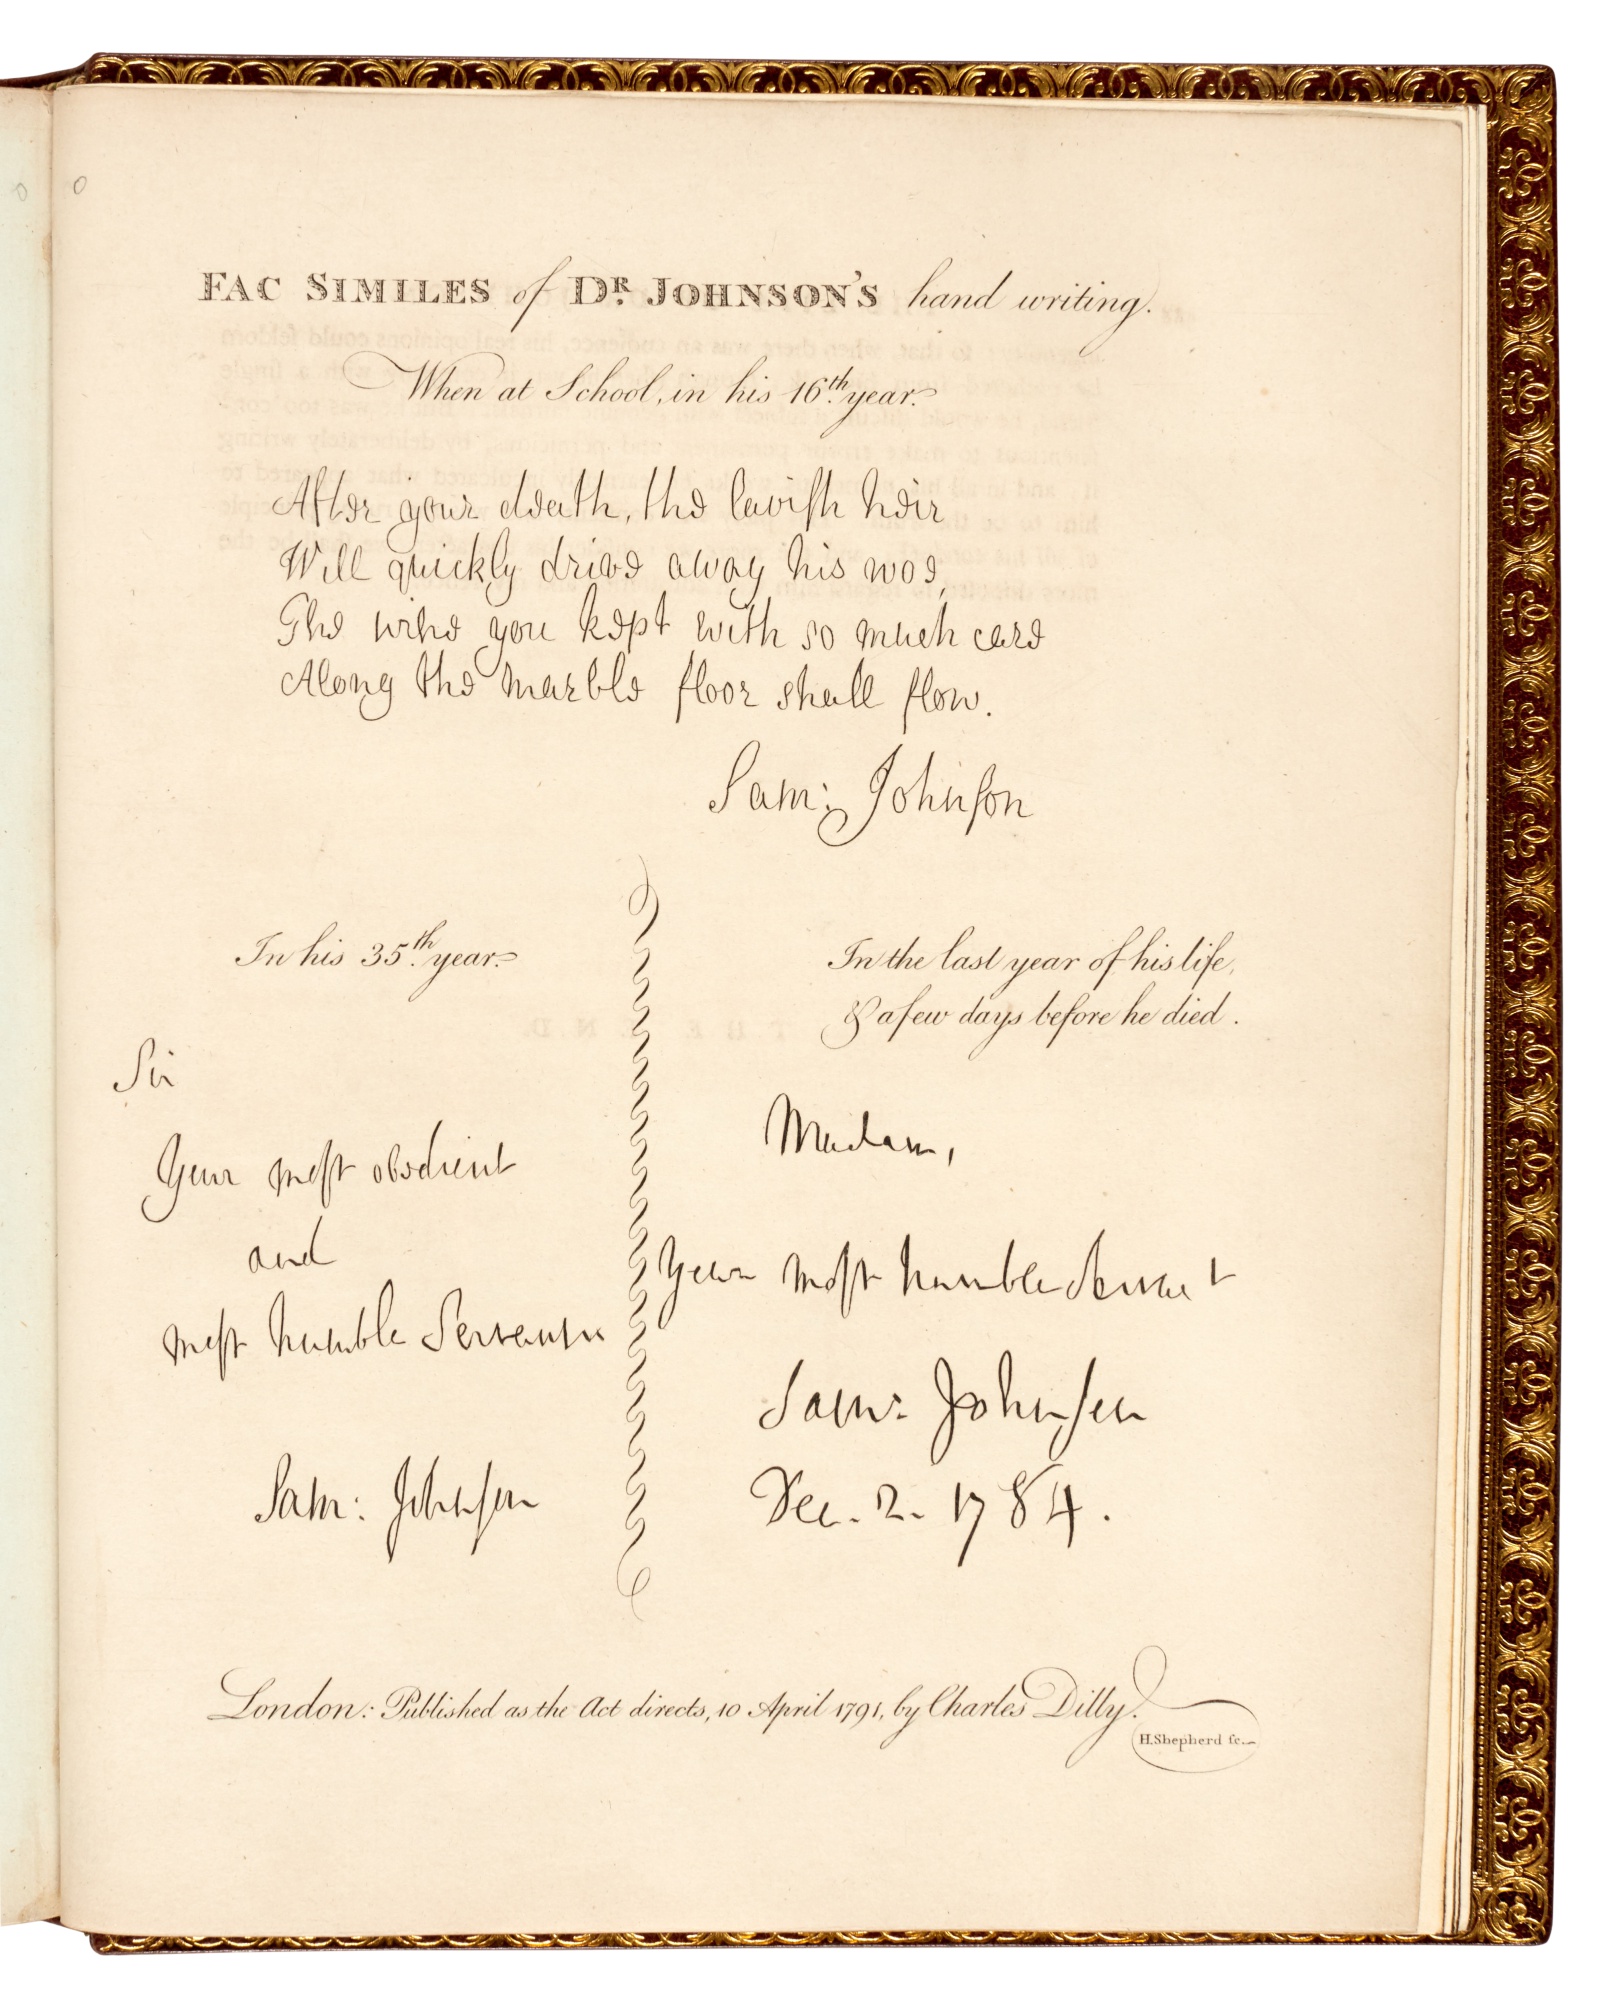 FAC SIMILES of DR. JOHNSON'S hand writing.
When at School, in his 16th. year.
After your death, the lavish heir
Will quickly drive away his woe,
The wine you kept with so much care
Along the marble floor shall flow.
Sam: Johnson
In his 35th. year.
Sir
Your most obedient
and
most humble Servant
Sam: Johnson
In the last year of his life,
& a few days before he died.
Madam,
Your most humble Servant
Sam: Johnson
Dec. 2. 1784.
London: Published as the Act directs, 10 April 1791, by Charles Dilly.
H. Shepherd sc.